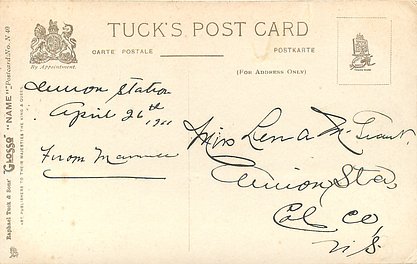 TUCK'S POST CARD
By Appointment
CARTE POSTALE
POSTKARTE
(FOR ADDRESS ONLY)
Raphael Tuck & Sons' "GLOSSO" "NAME" Postcard No. N 49
ART PUBLISHERS TO THEIR MAJESTIES THE KING & QUEEN
TRADE MARK
Station
April 26th 1911
From
Miss Lena Mc
Union Sta
Col Co
N.S.